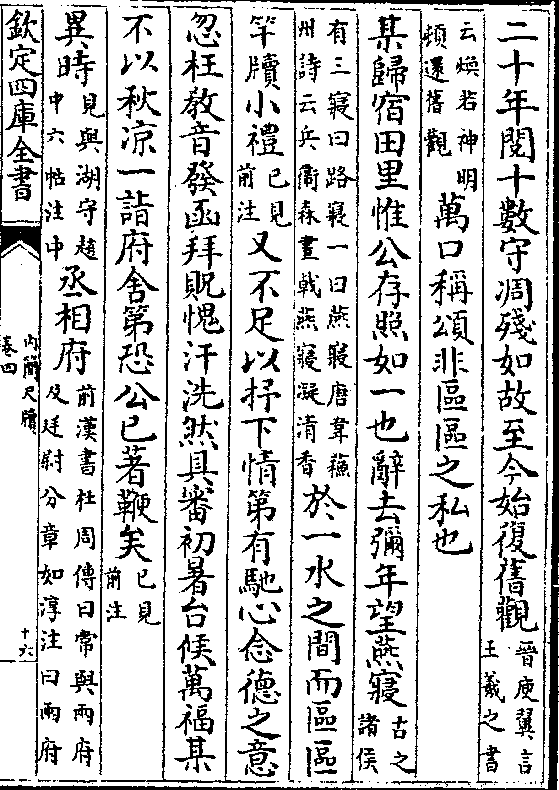 二十年閱十數守凋殘如故至今始復舊觀晉庾翼言王羲之書
云煥若神明頓還舊觀萬口稱頌非區區之私也
某歸宿田里惟公存照如一也辭去彌年望燕寢古之諸侯
有三寢曰路寢一曰燕寢唐韋蘇州詩云兵衛森畫戟燕寢凝清香於一水之間而區區
竿牘小禮已見前注又不足以抒下情第有馳心念德之意
忽枉敎音發函拜貺愧汗洗然具審初暑台候萬福某
不以秋凉一詣府舍第恐公已著鞭矣已見前注
異時見與湖守趙中六帖注中丞相府前漢書杜周傳曰常與兩府及廷尉分章如淳注曰兩府
欽定四庫全書
內簡尺牘
卷四
十六